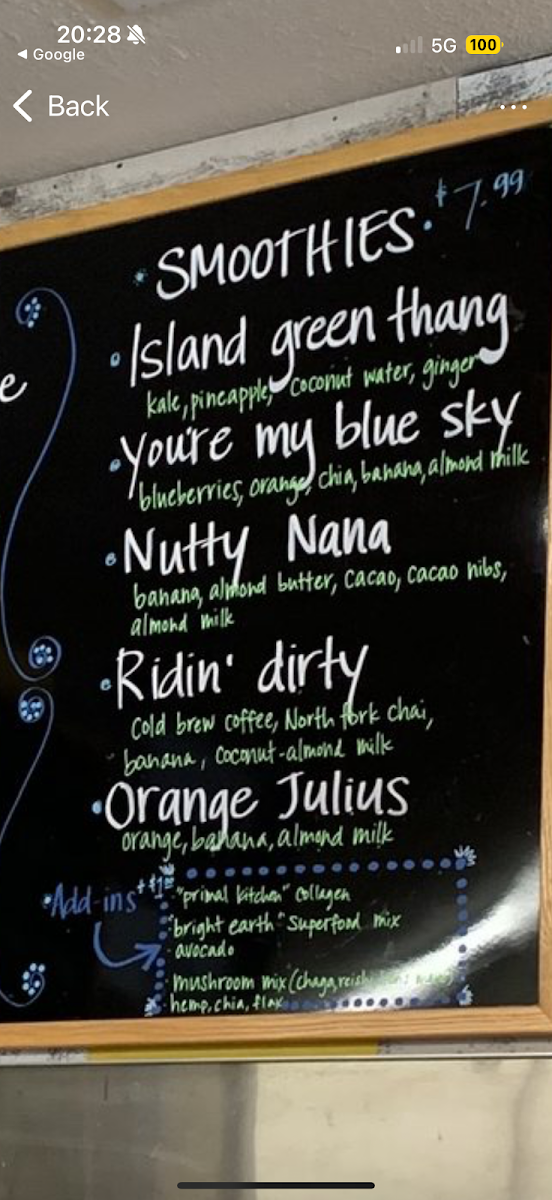 20:28
5G
100
Google
Back
SMOOTHIES. $7.99
e
Island green thang
kale, pineapple, coconut water, ginger
You're my blue sky
blueberries, orange, chia, banana, almond milk
Nutty Nana
banana, almond butter, cacao, cacao nibs,
almond milk
Ridin' dirty
Cold brew coffee, North fork chai,
banana, coconut-almond milk
Orange Julius
orange, banana, almond milk
Add-ins
"primal kitchen" collagen
"bright earth" superfood mix
avocado
mushroom mix (chaga, reishi
hemp, chia, flax